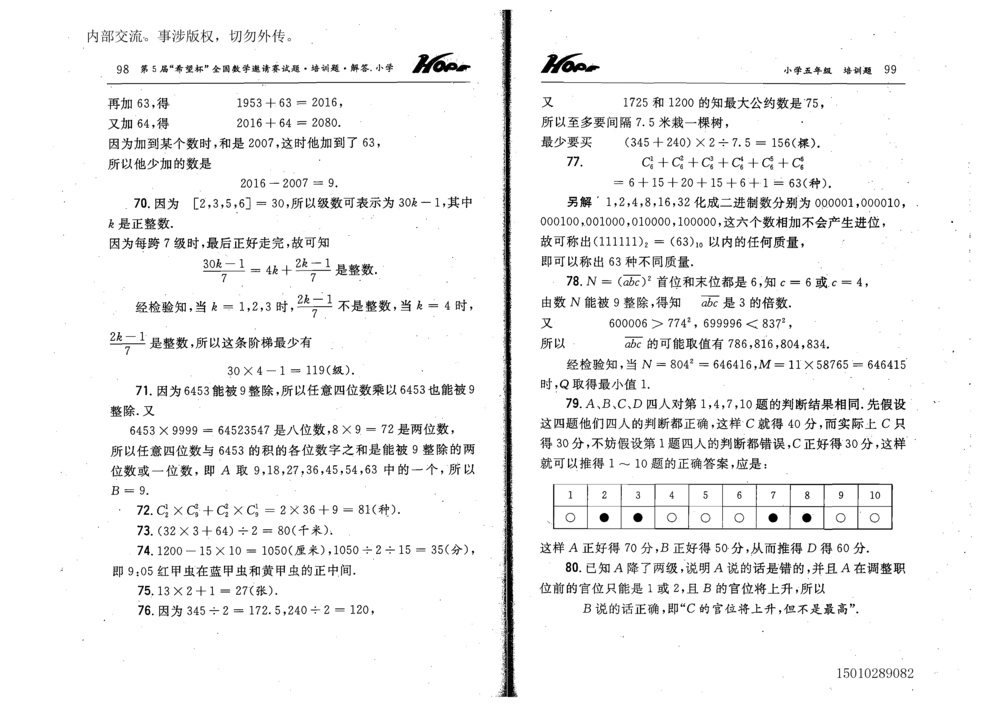 内部交流。事涉版权，切勿外传。
98 第5届“希望杯”全国数学邀请赛试题·培训题·解答.小学 Hope
再加 63,得 1953＋63＝2016,
又加 64,得 2016＋64＝2080.
因为加到某个数时,和是 2007,这时他加到了 63,
所以他少加的数是
2016－2007＝9.
70.因为 [2,3,5,6]＝30,所以级数可表示为 30k－1,其中
k 是正整数.
因为每跨 7 级时,最后正好走完,故可知
(30k－1)/7＝4k＋(2k－1)/7 是整数.
经检验知,当 k＝1,2,3 时,(2k－1)/7 不是整数,当 k＝4 时,
(2k－1)/7 是整数,所以这条阶梯最少有
30×4－1＝119(级).
71.因为 6453 能被 9 整除,所以任意四位数乘以 6453 也能被 9
整除.又
6453×9999＝64523547 是八位数,8×9＝72 是两位数,
所以任意四位数与 6453 的积的各位数字之和是能被 9 整除的两
位数或一位数，即 A 取 9,18,27,36,45,54,63 中的一个，所以
B＝9.
72.C₂¹×C₉²＋C₂²×C₉¹＝2×36＋9＝81(种).
73.(32×3＋64)÷2＝80(千米).
74.1200－15×10＝1050(厘米),1050÷2÷15＝35(分),
即 9:05 红甲虫在蓝甲虫和黄甲虫的正中间.
75.13×2＋1＝27(张).
76.因为 345÷2＝172.5,240÷2＝120,
Hope 小学五年级 培训题 99
又 1725 和 1200 的知最大公约数是 75,
所以至多要间隔 7.5 米栽一棵树,
最少要买 (345＋240)×2÷7.5＝156(棵).
77. C₆¹＋C₆²＋C₆³＋C₆⁴＋C₆⁵＋C₆⁶
＝6＋15＋20＋15＋6＋1＝63(种).
另解 1,2,4,8,16,32 化成二进制数分别为 000001,000010,
000100,001000,010000,100000,这六个数相加不会产生进位,
故可称出(111111)₂＝(63)₁₀ 以内的任何质量,
即可以称出 63 种不同质量.
78.N＝(a̅b̅c̅)² 首位和末位都是 6,知 c＝6 或 c＝4,
由数 N 能被 9 整除,得知 a̅b̅c̅ 是 3 的倍数.
又 600006＞774²,699996＜837²,
所以 a̅b̅c̅ 的可能取值有 786,816,804,834.
经检验知,当 N＝804²＝646416,M＝11×58765＝646415
时,Q 取得最小值 1.
79.A、B、C、D 四人对第 1,4,7,10 题的判断结果相同.先假设
这四题他们四人的判断都正确,这样 C 就得 40 分,而实际上 C 只
得 30 分,不妨假设第 1 题四人的判断都错误,C 正好得 30 分,这样
就可以推得 1～10 题的正确答案,应是:
1 2 3 4 5 6 7 8 9 10
○ ● ● ○ ○ ○ ● ● ○ ○
这样 A 正好得 70 分,B 正好得 50 分,从而推得 D 得 60 分.
80.已知 A 降了两级,说明 A 说的话是错的,并且 A 在调整职
位前的官位只能是 1 或 2,且 B 的官位将上升,所以
B 说的话正确,即“C 的官位将上升,但不是最高”.
15010289082